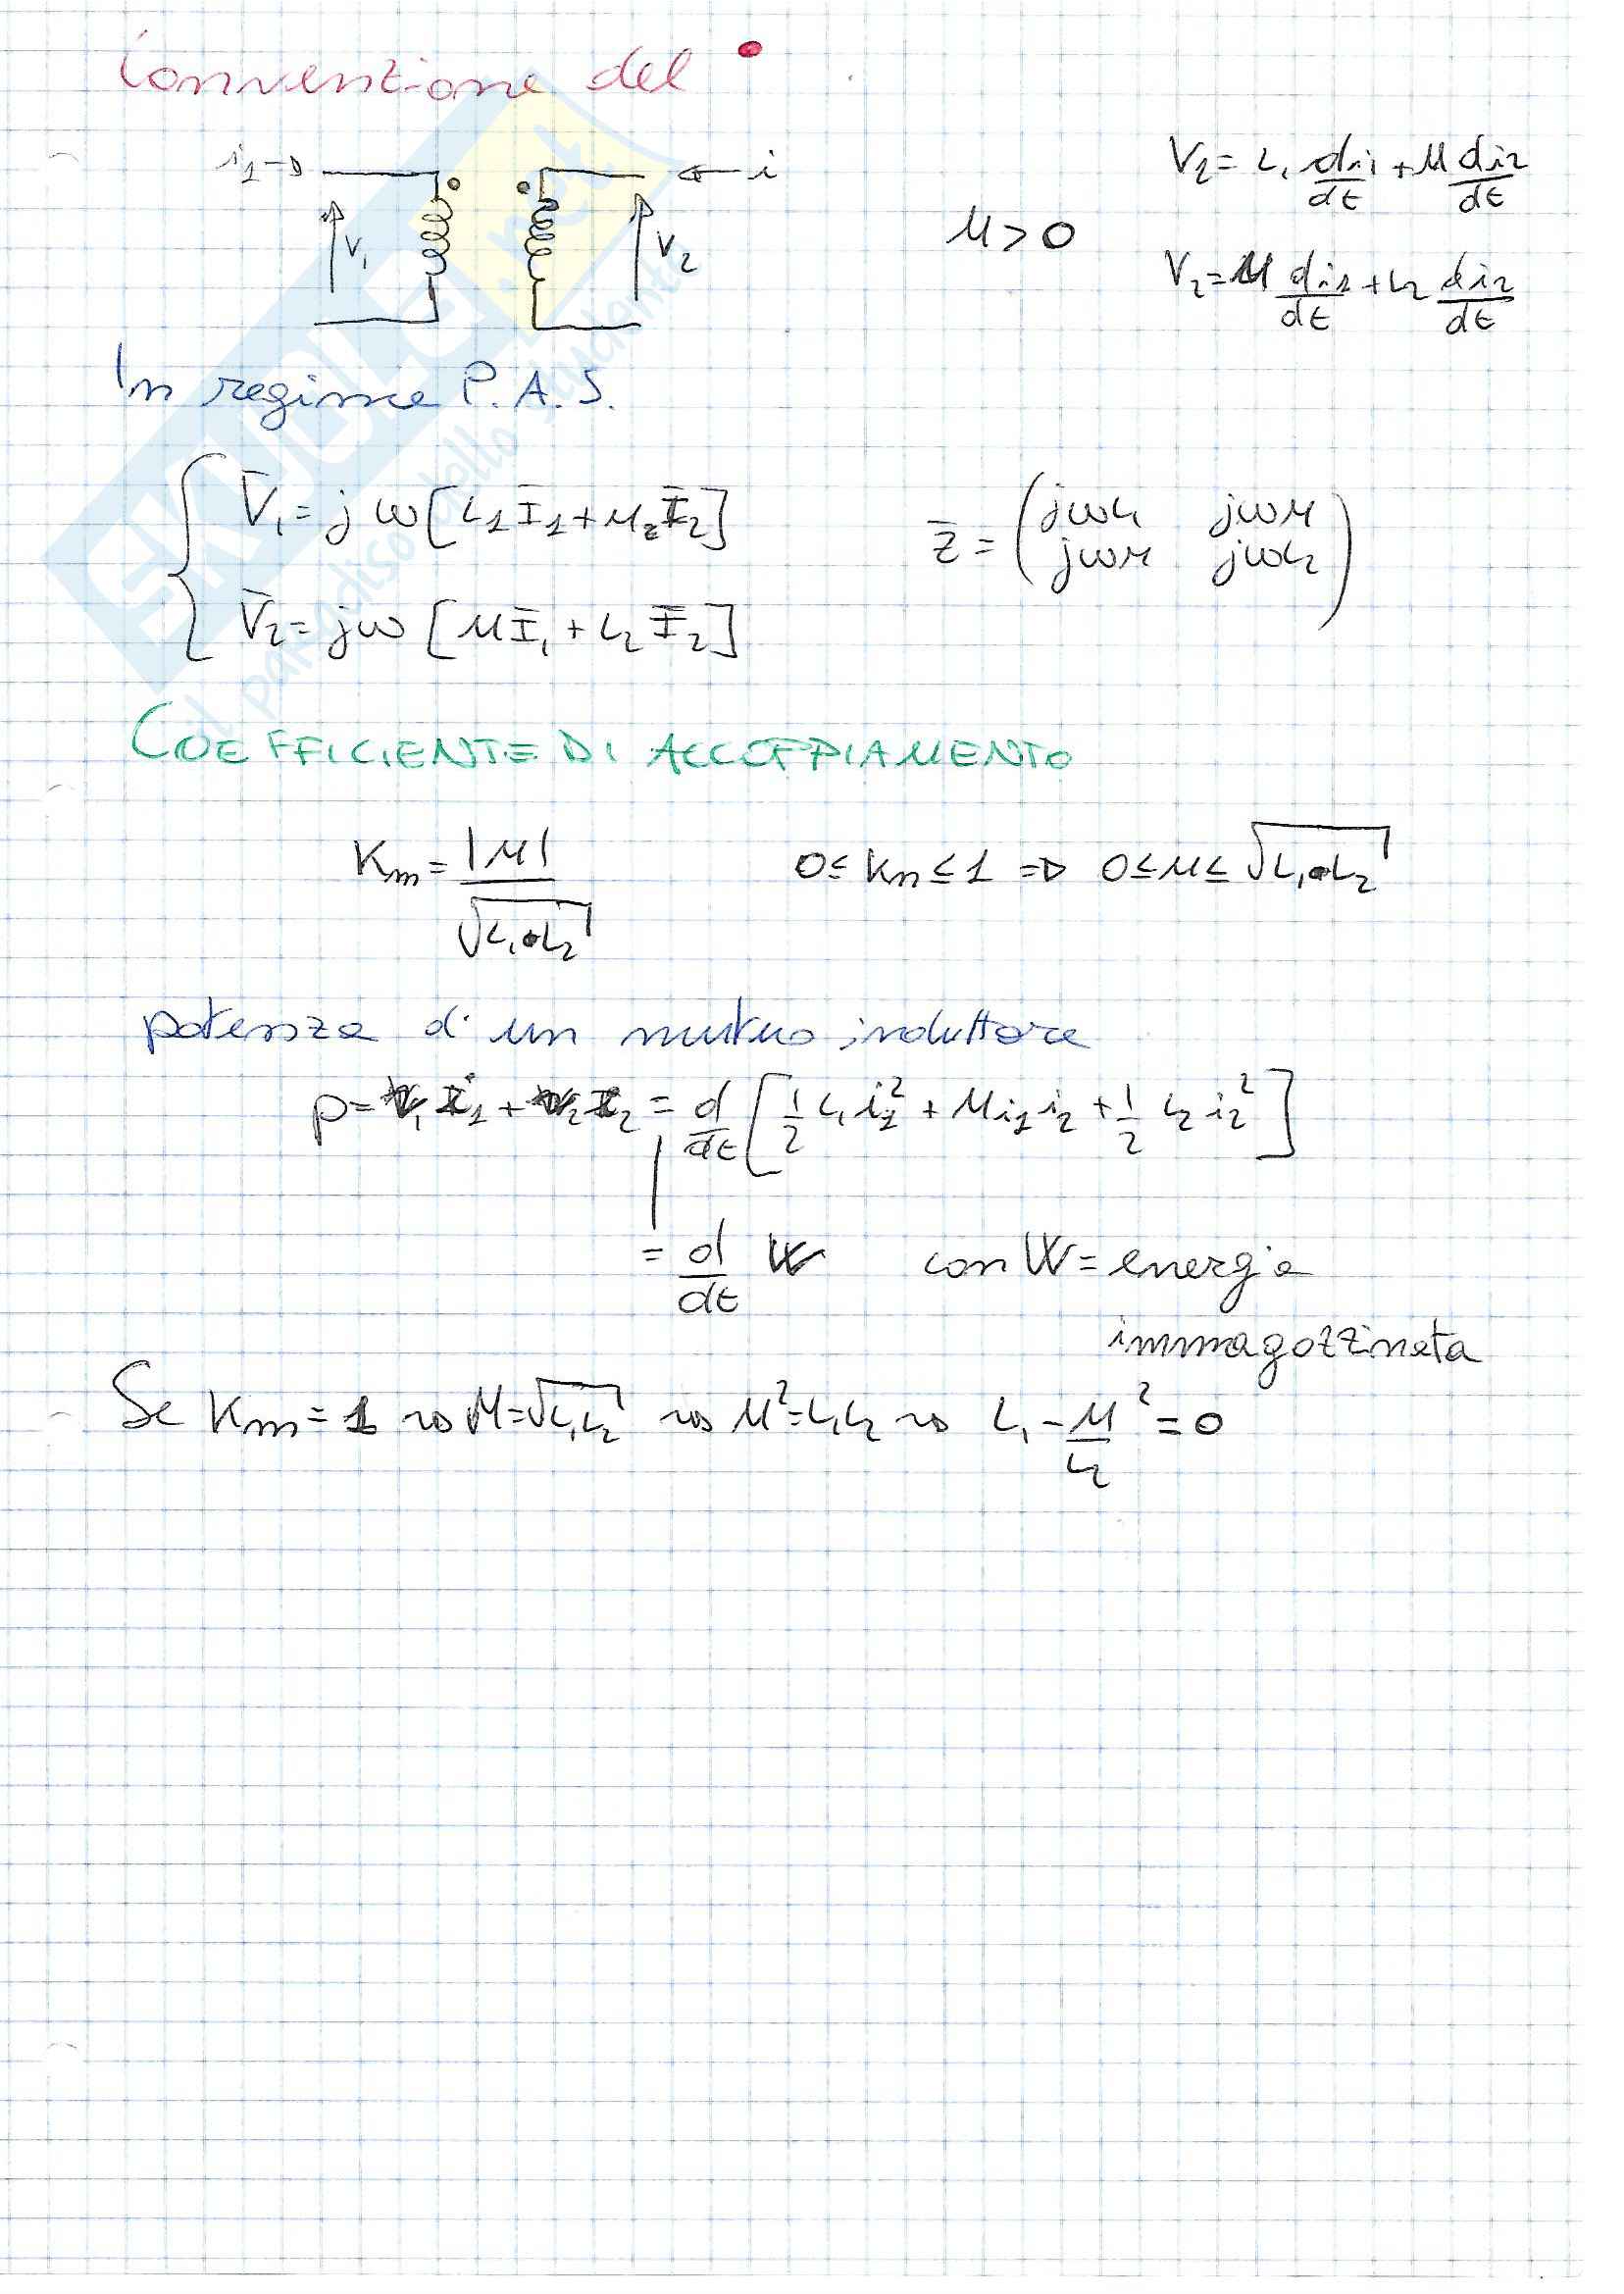 Convenzione del •
i1→ ← i
V1 V2
M > 0
V2 = L1 di1/dt + M di2/dt
V2 = M di1/dt + L2 di2/dt
In regime P.A.S.
V̄1 = jω[L1 Ī1 + M2 Ī2]
V̄2 = jω[M Ī1 + L2 Ī2]
z̄ = (jωL1 jωM
jωM jωL2)
COEFFICIENTE DI ACCOPPIAMENTO
Km = |M| / √L1•L2
0 ≤ km ≤ 1 => 0 ≤ M ≤ √L1•L2
potenza di un mutuo induttore
p = v1 i1 + v2 i2 = d/dt [1/2 L1 i1² + M i1 i2 + 1/2 L2 i2²]
= d/dt W con W = energia
immagazzinata
Se Km = 1 → M = √L1L2 → M² = L1L2 → L1 - M²/L2 = 0
SKUOLA.net
il paradiso dello studente